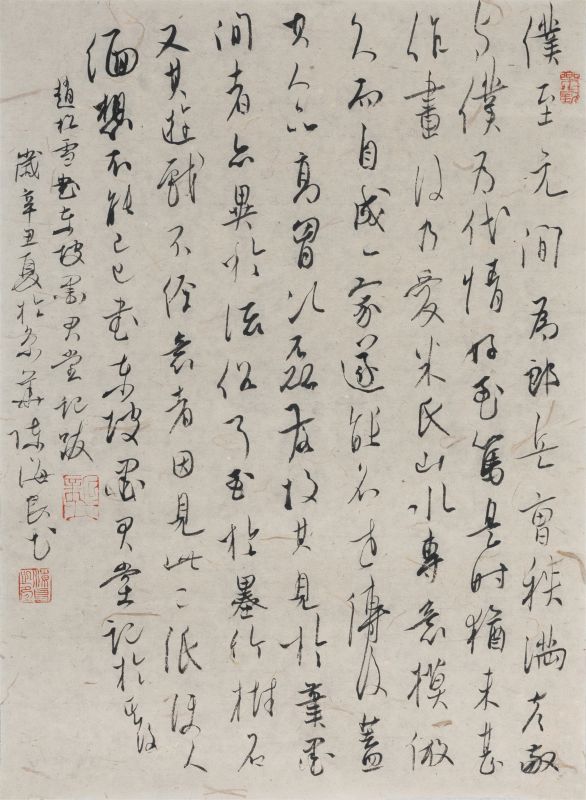 僕至元間為郎兵曹秩滿彥敬
与僕為代情好至篤是时猶未甚
作畫後乃愛米氏山水專意摸倣
久而自成一家遂能名世傳後蓋
其人品高胸次磊落故其見於筆墨
间者亦異於流俗耳至於墨竹樹石
又其遊戲不經意者因見此二紙使人
緬想不能已已書東坡墨君堂記於其後
趙松雪書東坡墨君堂記跋
歲辛丑夏於京華陳海良书